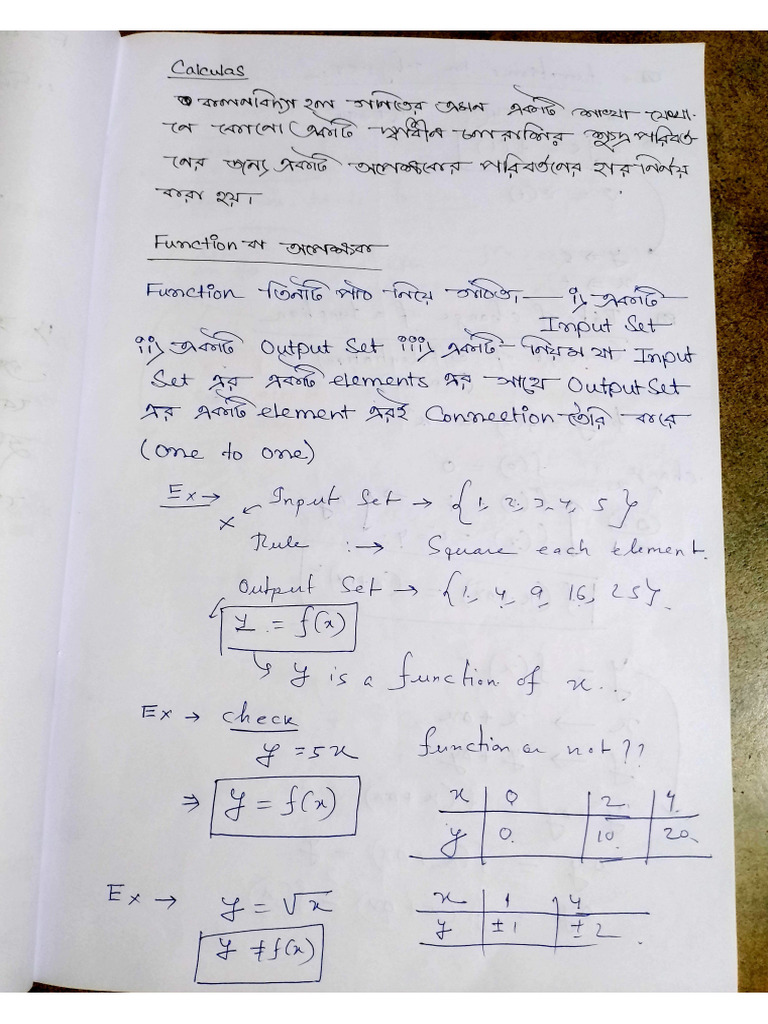 Calculas
কলনবিদ্যা হল গণিতের এমন একটি শাখা যেখা-
নে কোনো একটি স্বাধীন চলরাশির ক্ষুদ্র পরিবর্ত
নের জন্যে একটি অপেক্ষকের পরিবর্তনের হার নির্ণয়
করা হয়।
Function বা অপেক্ষক
Function তিনটি পার্ট নিয়ে গঠিত। — i) একটি
Input Set
ii) একটি Output Set iii) একটি নিয়ম যা Input
Set এর একটি elements এর সাথে Output Set
এর একটি element এরই Connection তৈরি করে
(one to one)
Ex → Input Set → {1, 2, 3, 4, 5}
x
Rule :→ Square each element.
Output Set → {1, 4, 9, 16, 25}.
y = f(x)
y is a function of x.
Ex → check
y = 5x function or not??
⇒ y = f(x)
x 0 2 4
y 0 10 20
Ex → y = √x
x 1 4
y ±1 ±2
y ≠ f(x)